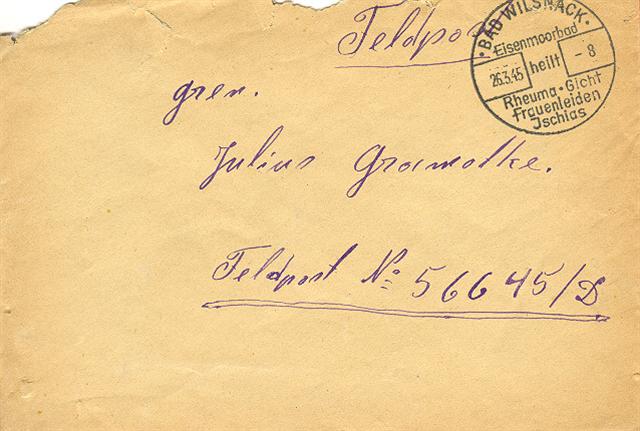 Feldpost
BAD WILSNACK
Eisenmoorbad
26.3.45 heilt - 8
Rheuma · Gicht
Frauenleiden
Ischias
gren.
Julius Gramolke.
Feldpost No 56645/D